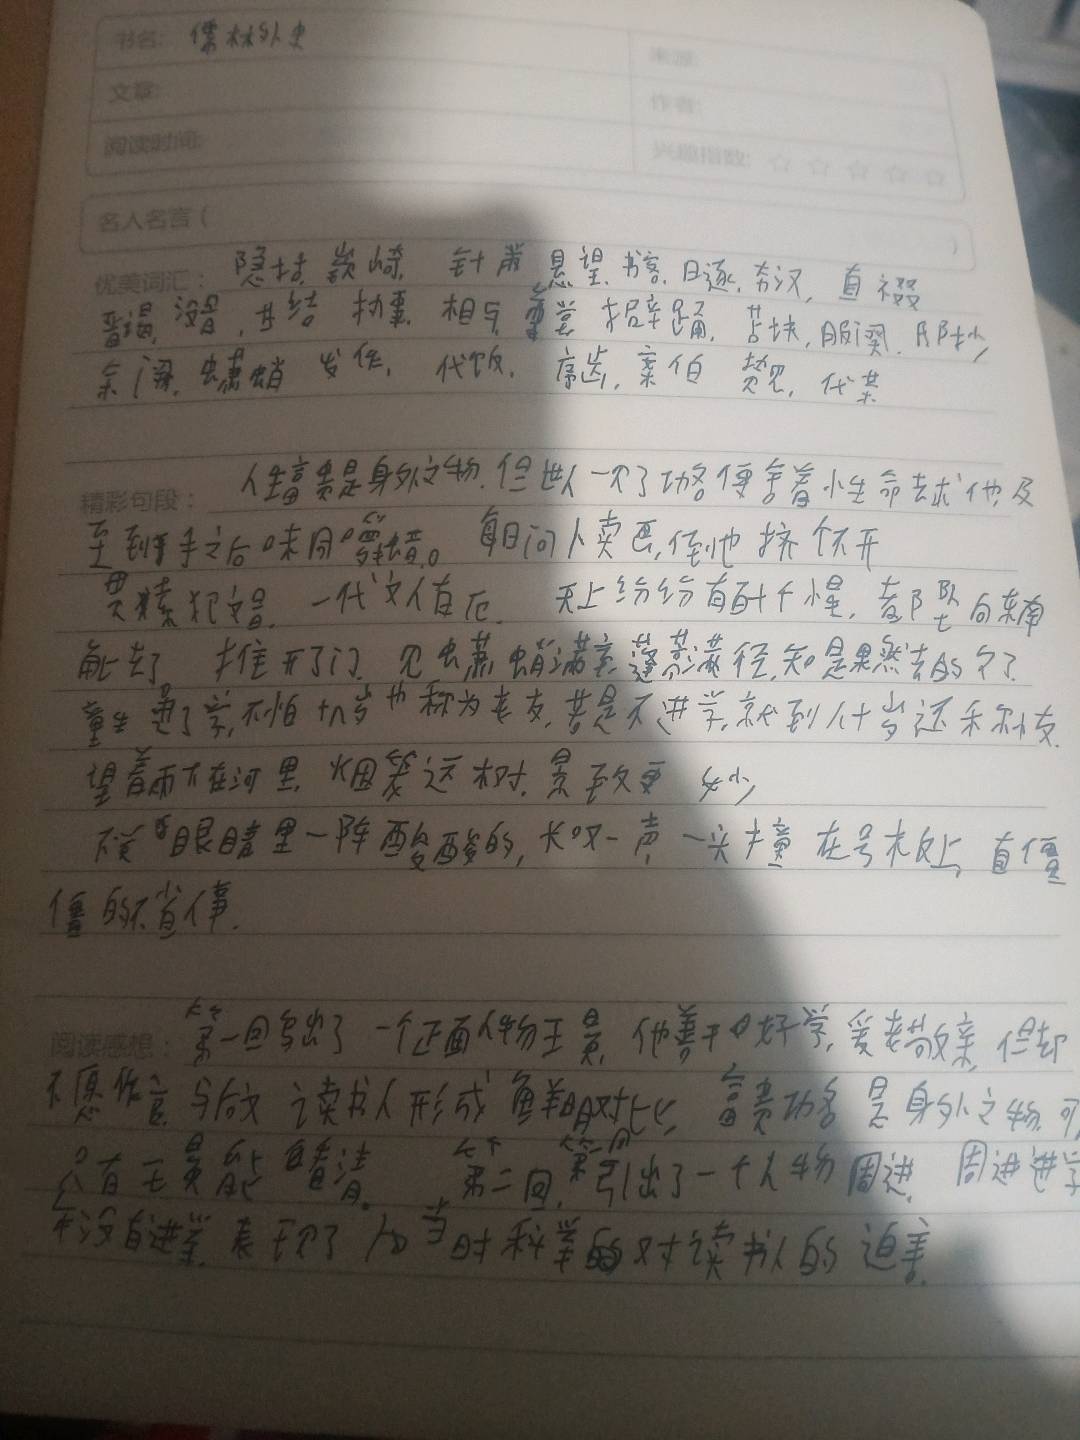 书名: 儒林外史
来源:
文章:
作者:
阅读时间:
兴趣指数: ☆ ☆ ☆ ☆ ☆
名人名言 ( )
优美词汇: 隐括, 嵚崎, 针黹 悬望, 书客, 日逐, 夯汉, 直裰
没 , 相与, 擗踊, 苫块, 服阕,
蟏蛸 发作, 代饭, 序齿, 桑伯 贽见, 代茶
精彩句段: 人生富贵是身外之物, 但世人一见了功名便舍着小生命去求他, 及
至到手之后味同嚼蜡。 每日问卜卖画, 倒也挤个不开
贯索犯文昌, 一代文人有厄. 天上纷纷有百十个小星, 都坠向东南
角上去了 推开了门, 见蟏蛸满室, 蓬蒿满径, 知是果然去的久了.
童生进了学, 不怕十几岁也称为老友, 若是不进学, 就到八十岁还称小友.
望着雨下在河里, 烟笼远树, 景致更妙
不觉眼睛里一阵酸酸的, 长叹一声, 一头撞在号板上, 直僵
僵的不省人事.
阅读感想: 第一回写出了一个正面人物王冕, 他善于好学, 爱老敬亲, 但却
不愿做官 与后文读书人形成鲜明对比, 富贵功名是身外之物, 可
只有王冕能看清。 第二回, 引出了一个人物周进, 周进进学
没有进学, 表现了 当时科举的对读书人的迫害.